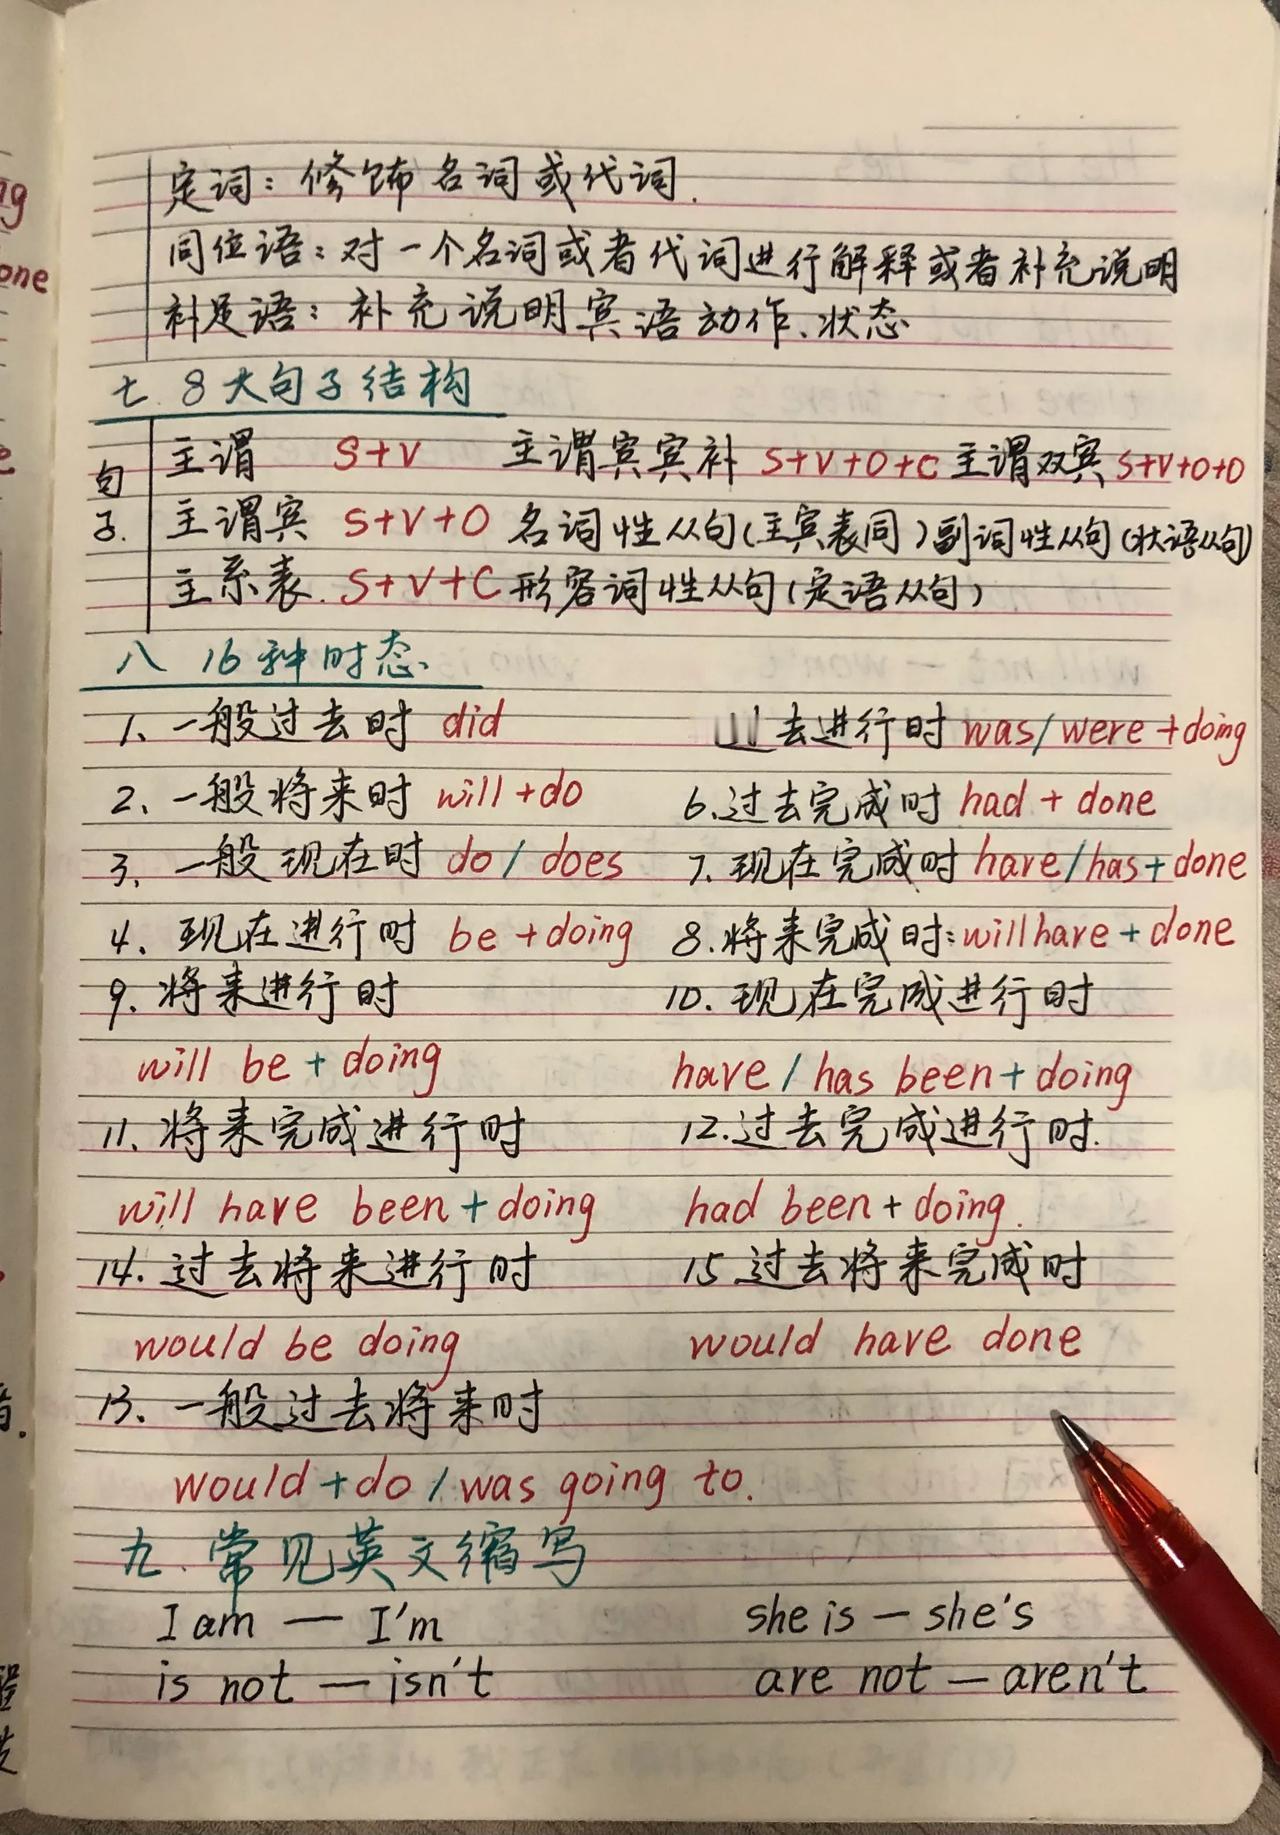 定词：修饰名词或代词.
同位语：对一个名词或者代词进行解释或者补充说明
补足语：补充说明宾语动作、状态
七. 8大句子结构
句子.
主谓 S+V 主谓宾宾补 S+V+O+C 主谓双宾 S+V+O+O
主谓宾 S+V+O 名词性从句(主宾表同) 副词性从句(状语从句)
主系表. S+V+C 形容词性从句(定语从句)
八 16种时态.
1、一般过去时 did 过去进行时 was/were+doing
2、一般将来时 will+do 6.过去完成时 had + done
3、一般现在时 do / does 7. 现在完成时 have/has+done
4、现在进行时 be +doing 8.将来完成时:will have + done
9. 将来进行时 10. 现在完成进行时
will be + doing have / has been + doing
11、将来完成进行时 12.过去完成进行时.
will have been + doing had been + doing.
14. 过去将来进行时 15.过去将来完成时
would be doing would have done
13、一般过去将来时
would+do / was going to.
九、常见英文缩写
I am — I'm she is — she's
is not — isn't are not — aren't